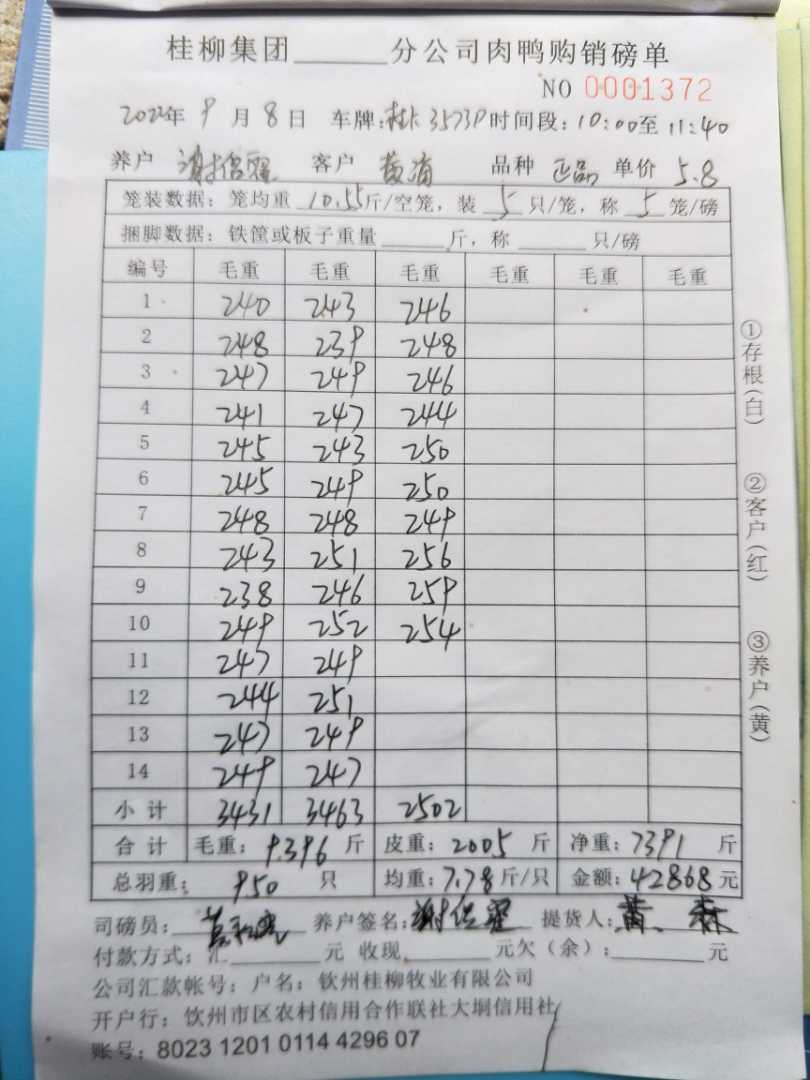 桂柳集团______分公司肉鸭购销磅单
NO 0001372
2022年 9 月 8 日 车牌:桂K3573P 时间段: 10:00至 11:40
养户 客户 品种 正品 单价 5.8
笼装数据: 笼均重 10.55斤/空笼, 装 5 只/笼, 称 5 笼/磅
捆脚数据: 铁筐或板子重量______斤, 称______只/磅
编号 毛重 毛重 毛重 毛重 毛重 毛重
1 240 243 246
2 248 239 248
3 247 249 246
4 241 247 244
5 245 243 250
6 245 249 250
7 248 248 249
8 243 251 256
9 238 246 259
10 249 252 254
11 247 249
12 244 251
13 247 249
14 249 247
小计 3431 3463 2502
合计 毛重: 9396 斤 皮重: 2005 斤 净重: 7391 斤
总羽重: 950 只 均重: 7.78斤/只 金额: 42868元
司磅员: 养户签名: 提货人: 黄森
付款方式: 汇______元 收现______元欠(余):______元
公司汇款帐号: 户名: 钦州桂柳牧业有限公司
开户行: 钦州市区农村信用合作联社大垌信用社
账号: 8023 1201 0114 4296 07
①存根(白)
②客户(红)
③养户(黄)